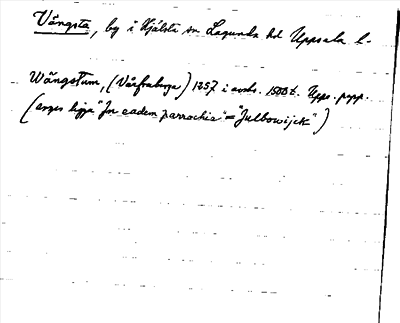 Vångsta, by i Hjälsta sn Lagunda hd Uppsala l.
Wångstum, (Vårfruberga) 1257 i avskr. 1500 t. Upps. papp.
(anges ligga "In eadem parrochia" = "Julbowijek")